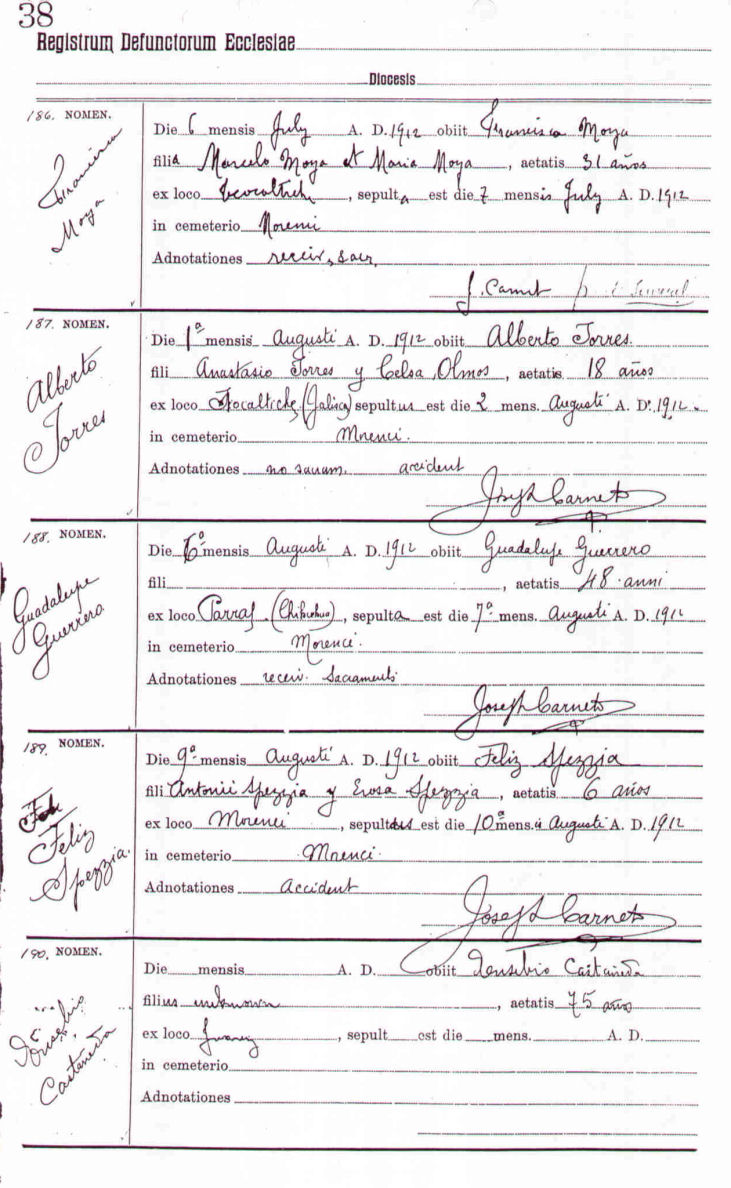 38
Registrum Defunctorum Ecclesiae
Diocesis
186. NOMEN.
Francisca
Moya
Die 6 mensis July A. D. 1912 obiit Francisca Moya
filia Marcelo Moya et Maria Moya, aetatis 31 años
ex loco, sepulta est die 7 mensis July A. D. 1912
in cemeterio Morenci
Adnotationes receiv. sacr.
J. Carnet
187. NOMEN.
Alberto
Torres
Die 1ª mensis Augusti A. D. 1912 obiit Alberto Torres.
fili Anastasio Torres y Celsa Olmos, aetatis 18 años
ex loco Tocaltiche (Jalisco) sepultus est die 2 mens. Augusti A. D. 1912.
in cemeterio Mrenci.
Adnotationes no sacram. accident
Joseph Carnet
188. NOMEN.
Guadalupe
Guerrero
Die 6º mensis Augusti A. D. 1912 obiit Guadalupe Guerrero
fili, aetatis 48 anni
ex loco Parral (Chihuhua), sepulta est die 7º mens. Augusti A. D. 1912
in cemeterio Morenci.
Adnotationes receiv. Sacraments
Joseph Carnet
189. NOMEN.
Feliz
Spezzia.
Die 9ª mensis Augusti A. D. 1912 obiit Feliz Spezzia
fili Antonii Spezzia y Erosa Spezzia, aetatis 6 años
ex loco Morenci, sepultus est die 10ª mens. Augusti A. D. 1912
in cemeterio Mrenci.
Adnotationes Accident
Joseph Carnet
190. NOMEN.
Eusebio
Castañeda
Die mensis A. D. obiit Eusebio Castañeda
filius unknown, aetatis 75 años
ex loco Juarez, sepult est die mens. A. D.
in cemeterio
Adnotationes